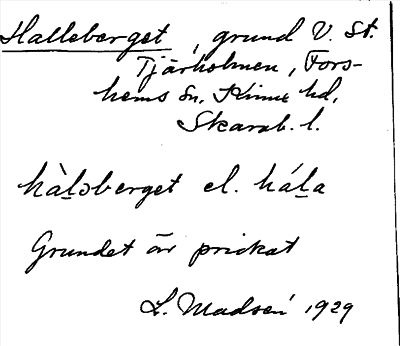 Halleberget, grund V. St.
Tjärholmen, Fors-
hems sn, Kinne hd,
Skarab. l.
hàl̠ɔberget el. hál̠a
Grundet är prickat
L. Madsén 1929